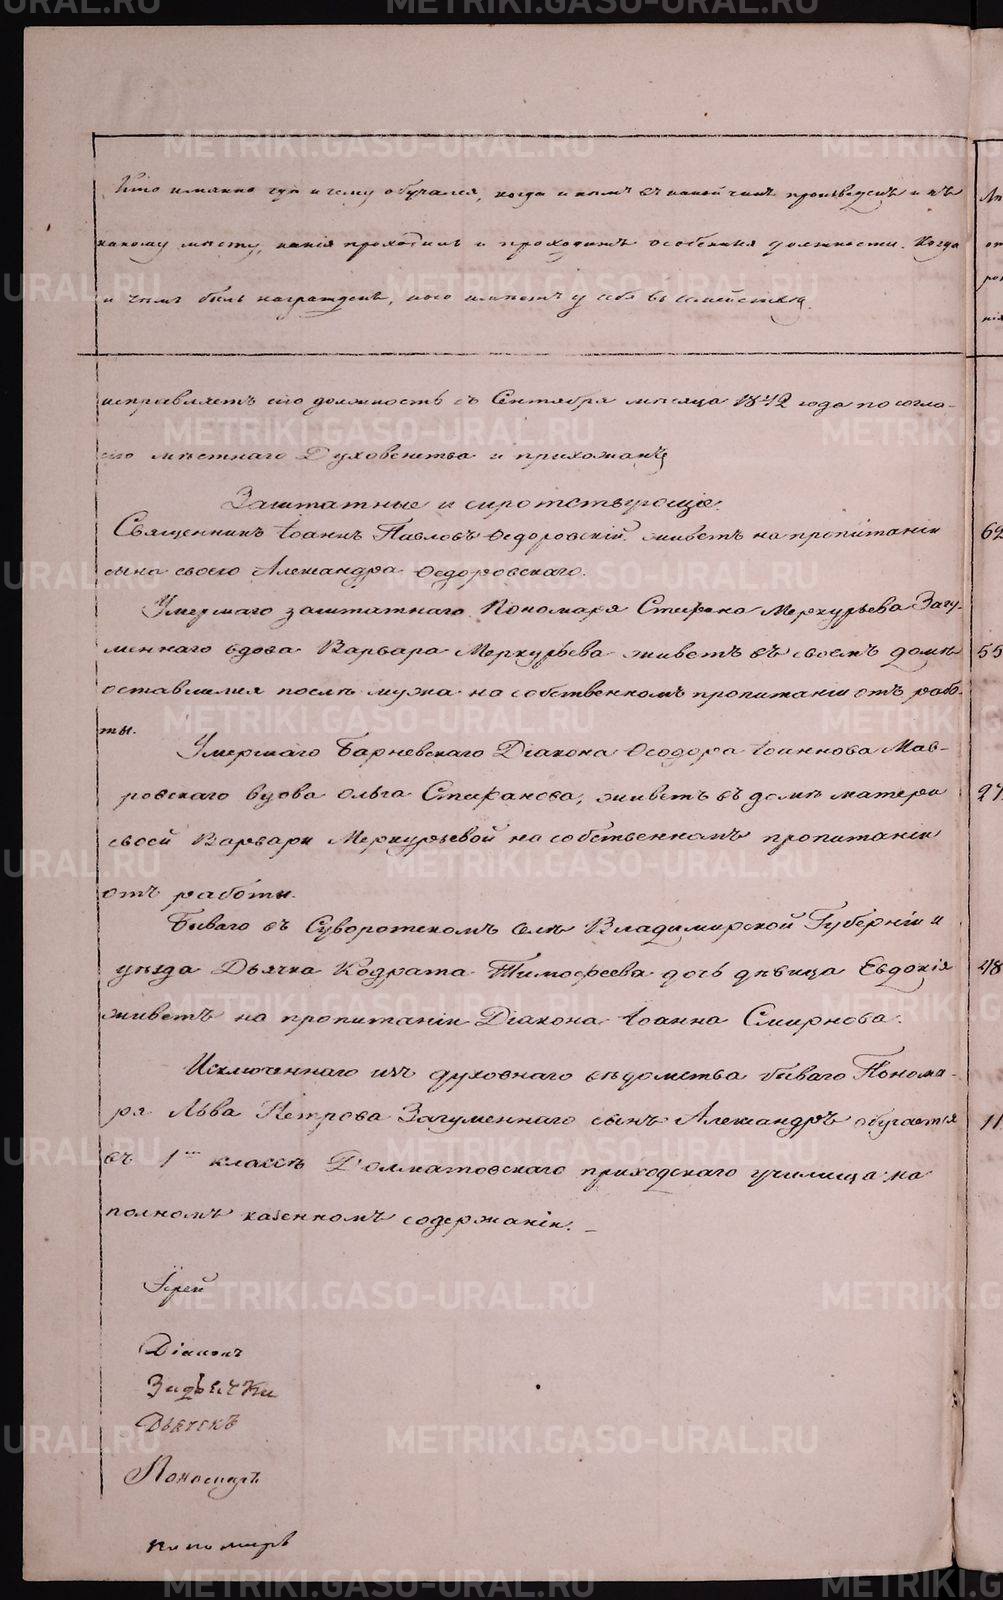 Кто имянно гдѣ и чему обучался, когда и кѣмъ въ какой чинъ произведенъ и къ
какому мѣсту, какія проходилъ и проходитъ особенныя должности. Когда
и чѣмъ былъ награжденъ, кого имѣетъ у себя въ семействѣ.
исправляетъ сію должность съ Сентября мѣсяца 1842 года по согла-
сію мѣстнаго Духовенства и прихожанъ
Заштатные и сиротствующіе.
Священникъ Іоаннъ Павловъ Ѳедоровскій живетъ на пропитаніи
62
сына своего Александра Ѳедоровскаго.
Умершаго заштатнаго Пономаря Стефана Меркурьева Загу-
меннаго вдова Варвара Меркурьева живетъ въ своемъ домѣ
55
оставшимся послѣ мужа на собственномъ пропитаніи отъ рабо-
ты.
Умершаго Барневскаго Діакона Ѳеодора Іоаннова Мав-
ровскаго вдова Ольга Стефанова, живетъ въ домѣ матери
27
своей Варвары Меркурьевой на собственномъ пропитаніи
отъ работы.
Бываго въ Суворотскомъ селѣ Владимирской Губерніи и
уѣзда Дьячка Кодрата Тимофеева дочь дѣвица Евдокія
48
живетъ на пропитаніи Діакона Іоанна Смирнова.
Исключеннаго изъ духовнаго вѣдомства бываго Понома-
ря Льва Петрова Загуменнаго сынъ Александръ обучается
11
въ 1мъ классѣ Долматовскаго приходскаго училища на
полномъ казенномъ содержаніи.
Іерей
Діаконъ
Дьячекъ
Пономарь
пономарь